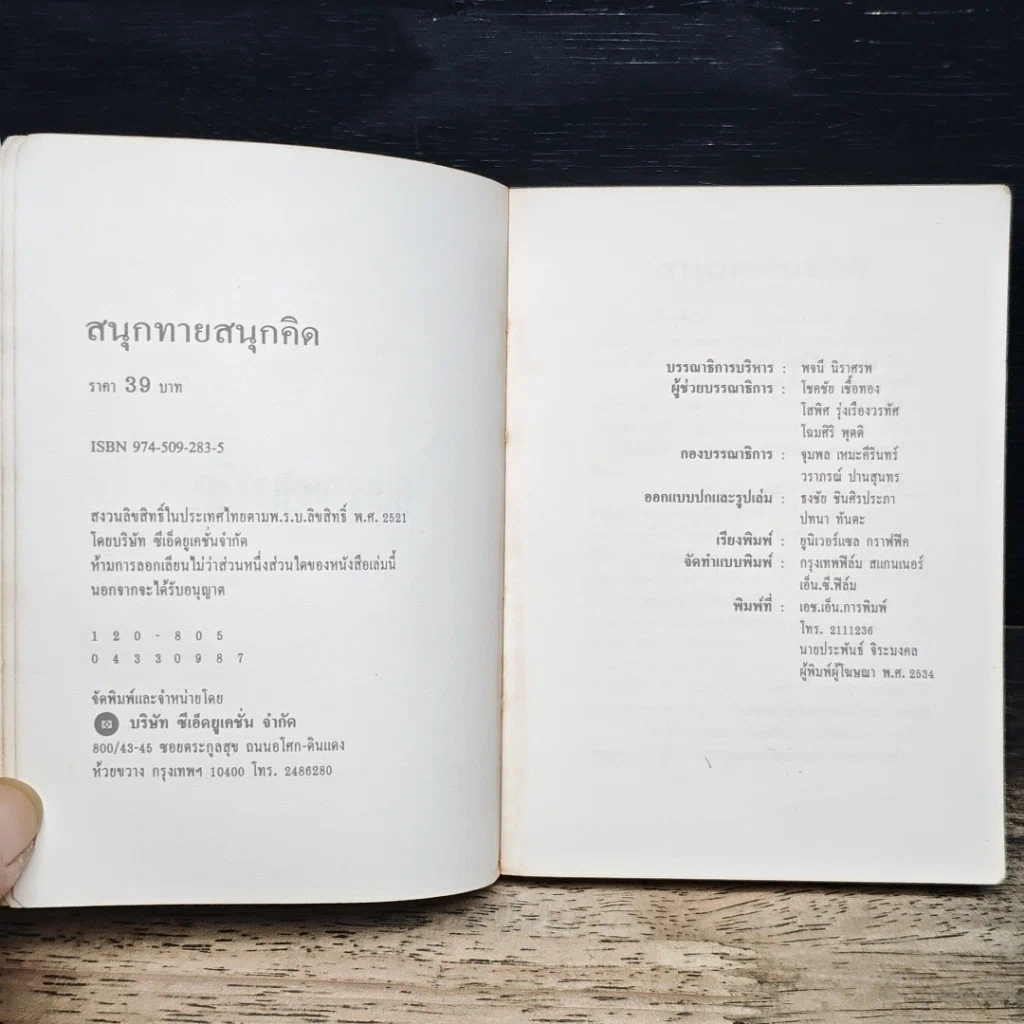 สนุกทายสนุกคิด
ราคา 39 บาท
ISBN 974-509-283-5
สงวนลิขสิทธิ์ในประเทศไทยตามพ.ร.บ.ลิขสิทธิ์ พ.ศ. 2521
โดยบริษัท ซีเอ็ดยูเคชั่นจำกัด
ห้ามการลอกเลียนไม่ว่าส่วนหนึ่งส่วนใดของหนังสือเล่มนี้
นอกจากจะได้รับอนุญาต
1 2 0 - 8 0 5
0 4 3 3 0 9 8 7
จัดพิมพ์และจำหน่ายโดย
บริษัท ซีเอ็ดยูเคชั่น จำกัด
800/43-45 ซอยตระกูลสุข ถนนอโศก-ดินแดง
ห้วยขวาง กรุงเทพฯ 10400 โทร. 2486280
บรรณาธิการบริหาร : พจนี นิราศรพ
ผู้ช่วยบรรณาธิการ : โชคชัย เชื้อทอง
โสพิศ รุ่งเรืองวรทัศ
โฉมศิริ พุดดิ
กองบรรณาธิการ : จุมพล เหมะคีรินทร์
วราภรณ์ ปานสุนทร
ออกแบบปกและรูปเล่ม : ธงชัย ชินศิรประภา
ปทนา ทันตะ
เรียงพิมพ์ : ยูนิเวอร์แซล กราฟฟิค
จัดทำแบบพิมพ์ : กรุงเทพฟิล์ม สแกนเนอร์
เอ็น.ซี.ฟิล์ม
พิมพ์ที่ : เอช.เอ็น.การพิมพ์
โทร. 2111236
นายประพันธ์ จิระมงคล
ผู้พิมพ์ผู้โฆษณา พ.ศ. 2534